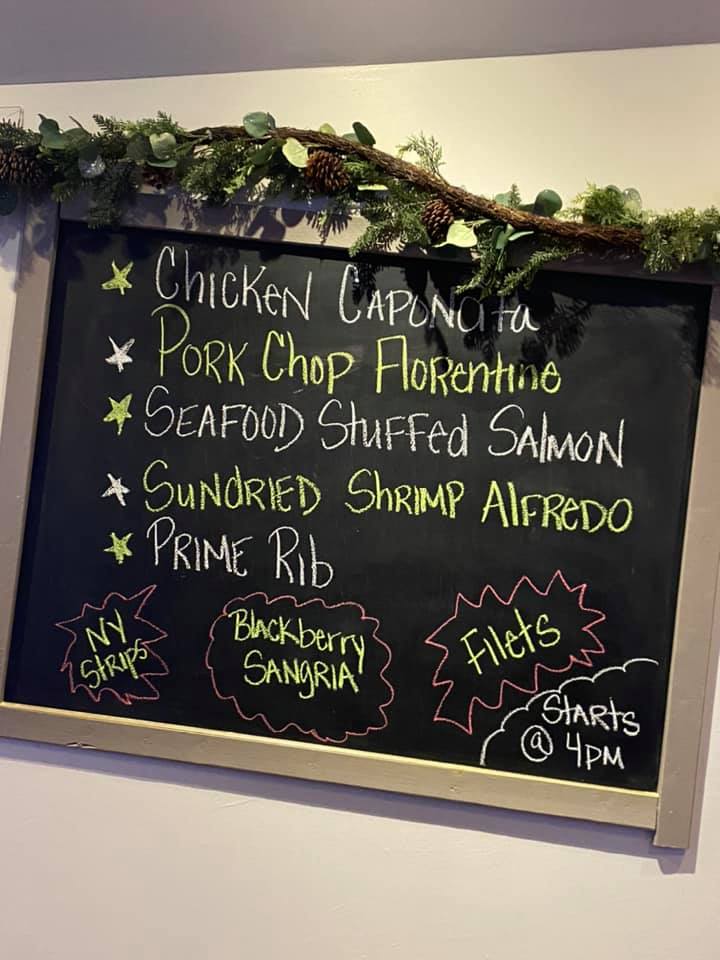 Chicken Caponata
Pork Chop Florentine
Seafood Stuffed Salmon
Sundried Shrimp Alfredo
Prime Rib
NY
Strips
Blackberry
Sangria
Filets
Starts
@ 4pm